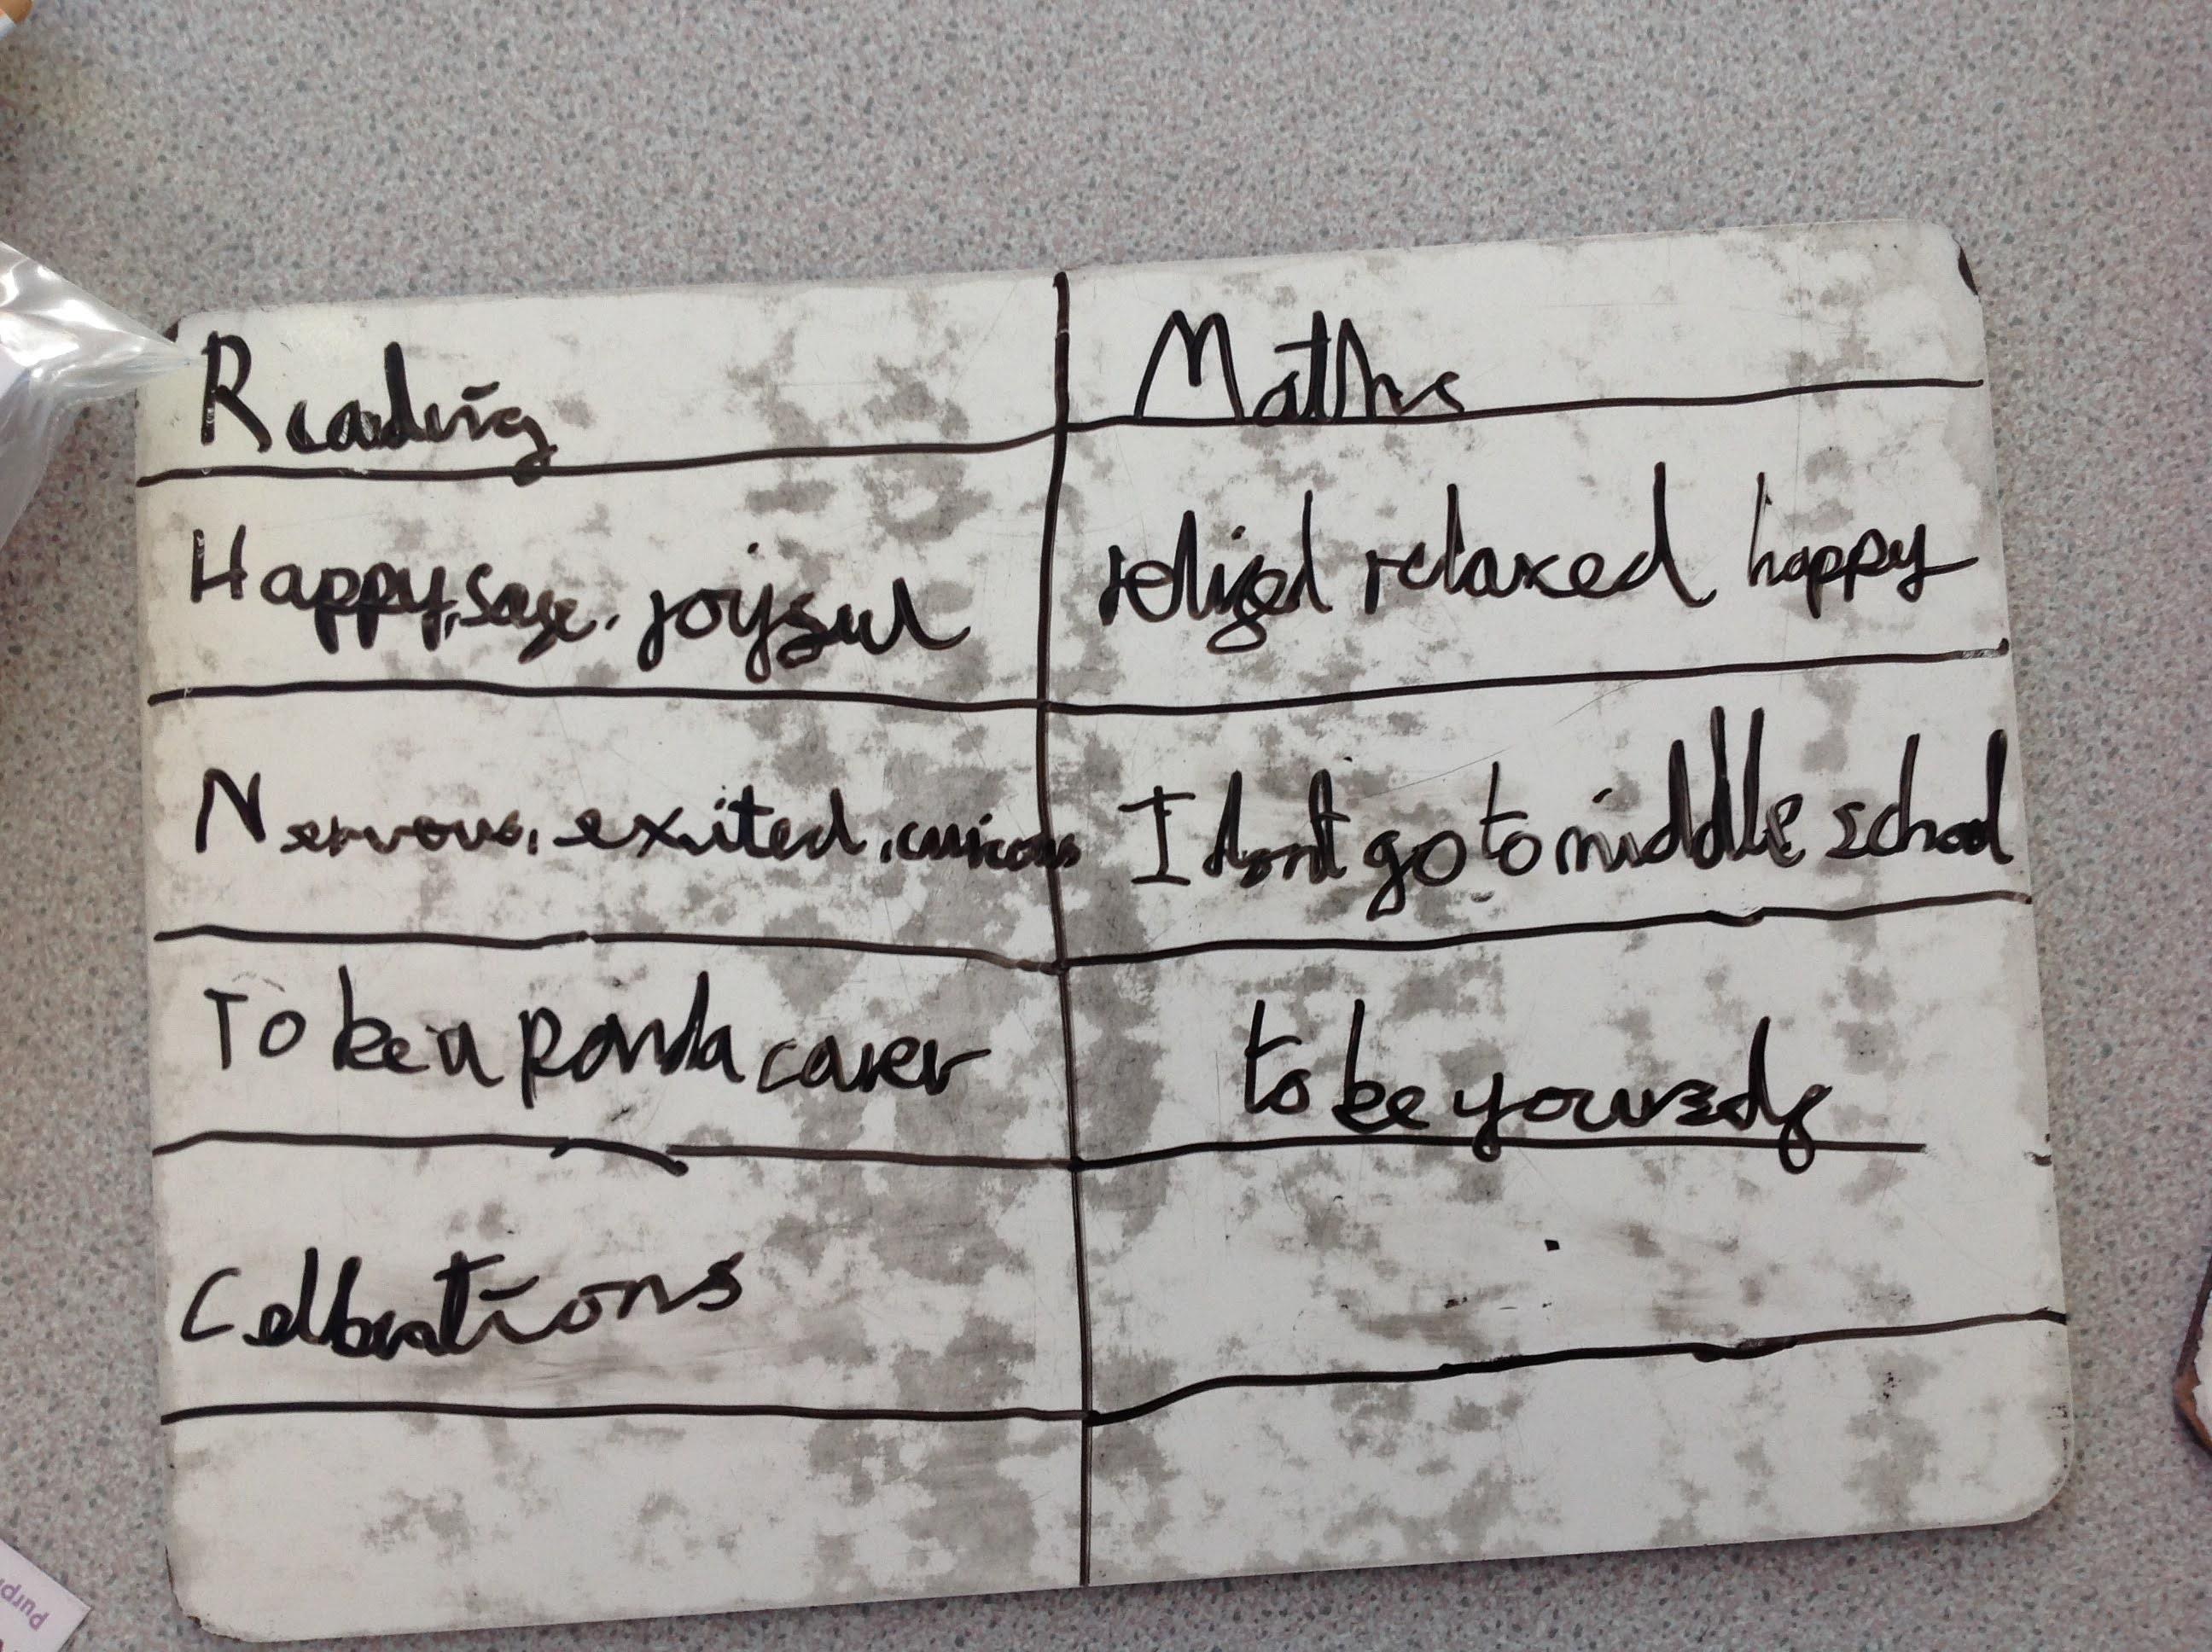 Reading
Maths
Happy, safe. joyful
relized relaxed happy
Nervous, exited, curious
I dont go to middle school
To be a panda carer
to be yourself
Celbrations
Purp